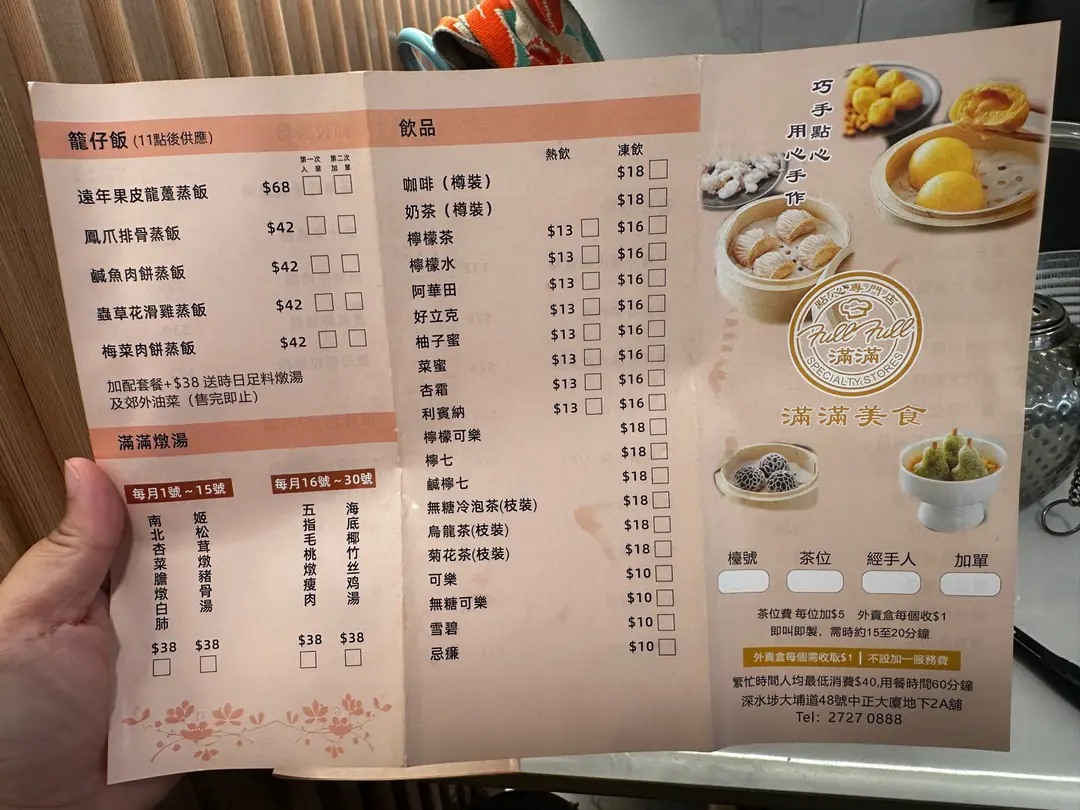 籠仔飯 (11點後供應)
第一次入單 第二次加單
遠年果皮龍躉蒸飯 $68
鳳爪排骨蒸飯 $42
鹹魚肉餅蒸飯 $42
蟲草花滑雞蒸飯 $42
梅菜肉餅蒸飯 $42
加配套餐+$38 送時日足料燉湯
及郊外油菜（售完即止）
滿滿燉湯
每月1號～15號
南北杏菜膽燉白肺 $38
姬松茸燉豬骨湯 $38
每月16號～30號
五指毛桃燉瘦肉 $38
海底椰竹丝鸡湯 $38
飲品
熱飲 凍飲
咖啡（樽裝） $18
奶茶（樽裝） $18
檸檬茶 $13 $16
檸檬水 $13 $16
阿華田 $13 $16
好立克 $13 $16
柚子蜜 $13 $16
菜蜜 $13 $16
杏霜 $13 $16
利賓納 $13 $16
檸檬可樂 $18
檸七 $18
鹹檸七 $18
無糖冷泡茶(枝裝) $18
烏龍茶(枝裝) $18
菊花茶(枝裝) $18
可樂 $10
無糖可樂 $10
雪碧 $10
忌廉 $10
巧手點心
用心手作
點心專門店
Full Full
滿滿
SPECIALTY STORES
滿滿美食
檯號 茶位 經手人 加單
茶位費 每位加$5 外賣盒每個收$1
即叫即製，需時約15至20分鐘
外賣盒每個需收取$1 | 不設加一服務費
繁忙時間人均最低消費$40,用餐時間60分鐘
深水埗大埔道48號中正大廈地下2A舖
Tel: 2727 0888